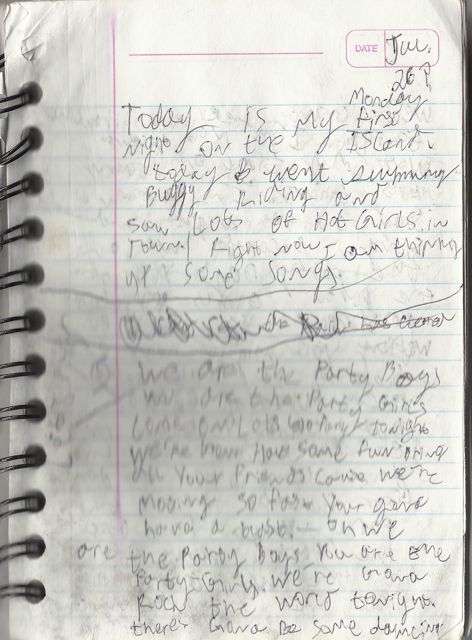 DATE Jul.
26
Monday
Today is My First
night on the Island.
today I went swimming
Buggy Riding and
saw Lots of Hot Girls in
Town. Right now I am thinking
up some songs.
We are the Party Boys
We are the Party Girls
Come on Lets go Party tonight
We're have some fun bring
all your friends Cause We're
moving so fast your gona
have a blast. We
are the Party boys You are the
Party Girls We're Gona
Rock the world tonight.
there's Gona be some dancing